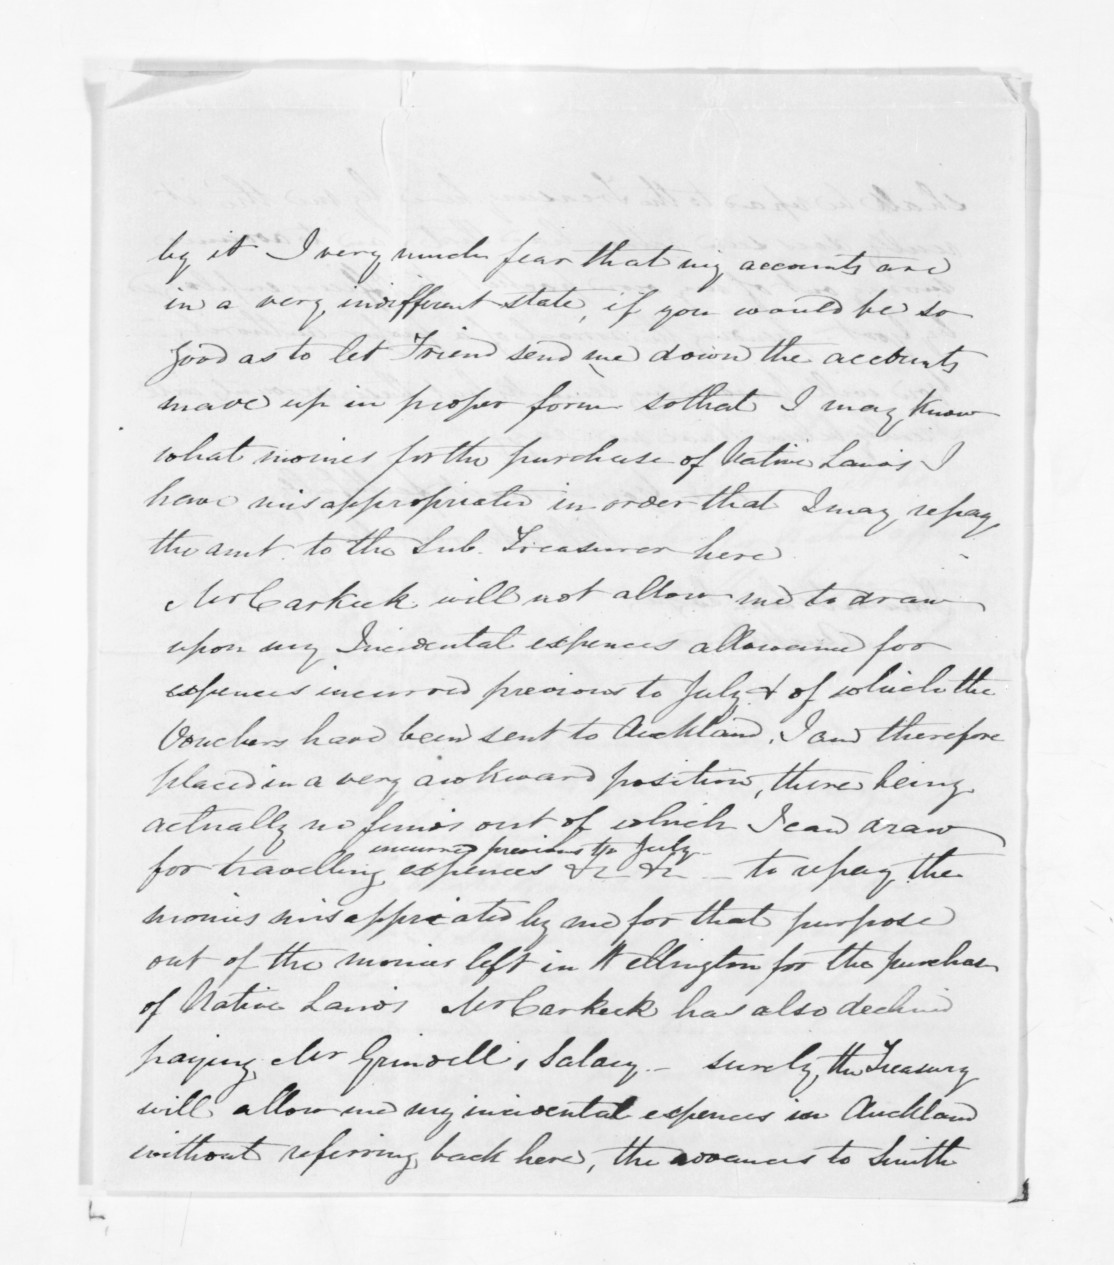 by it I very much fear that my accounts are
in a very indifferent state, if you would be so
good as to let Friend send me down the accounts
made up in proper form so that I may know
what monies for the purchase of Native Lands I
have misappropriated in order that I may repay
the amt. to the Sub. Treasurer here
Mr Carkeek will not allow me to draw
upon my Incidental expences allowance for
expences incurred previous to July & of which the
Vouchers have been sent to Auckland, I am therefore
placed in a very awkward position, there being
actually no funds out of which I can draw
incurred previous to July
for travelling expences &c &c — to repay the
monies misappriated by me for that purpose
out of the monies left in Wellington for the purchase
of Native Lands Mr Carkeek has also declined
paying Mr Grindell, Salary — surely the Treasury
will allow me my incidental expences in Auckland
without referring back here, the advances to Smith